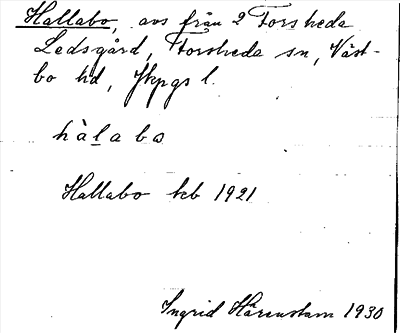 Hallabo, avs från 2 Forsheda
Ledsgård, Forsheda sn, Väst-
bo hd, Jkpgs l.
hàlabo
Hallabo kb 1921
Ingrid Härenstam 1930